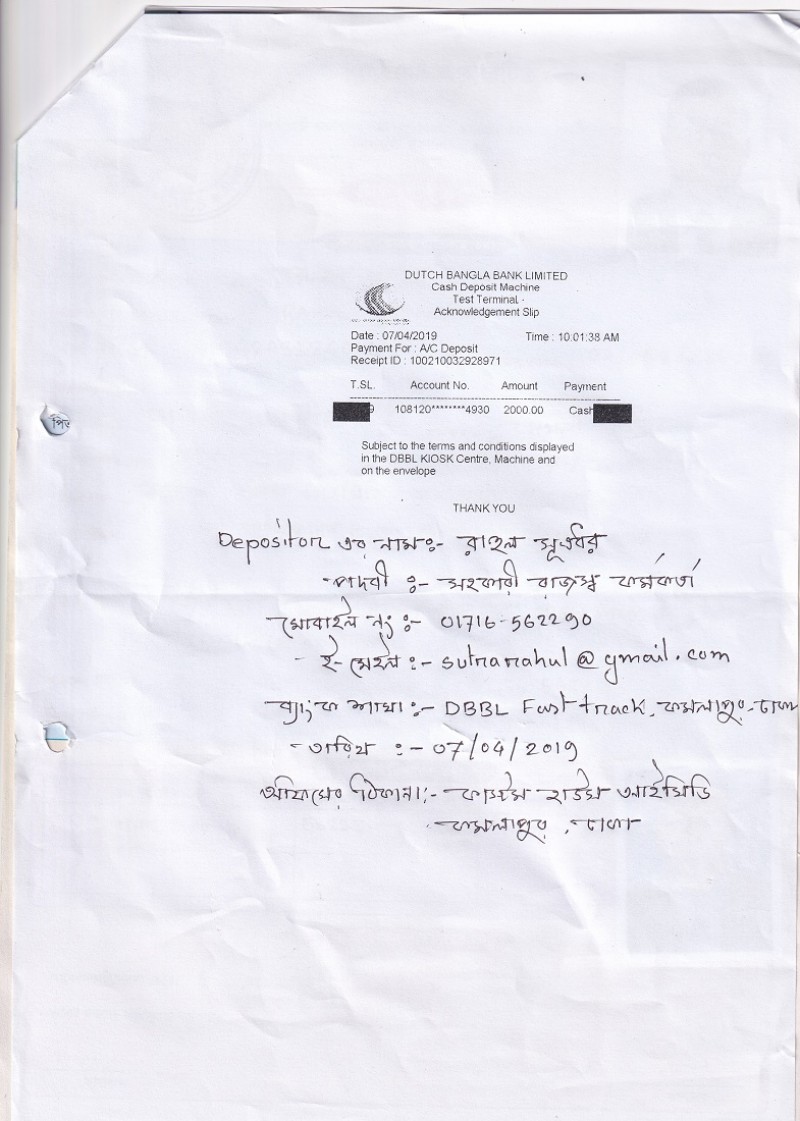 DUTCH BANGLA BANK LIMITED
Cash Deposit Machine
Test Terminal -
Acknowledgement Slip
Date : 07/04/2019 Time : 10:01:38 AM
Payment For : A/C Deposit
Receipt ID : 100210032928971
T.SL. Account No. Amount Payment
9 108120********4930 2000.00 Cash
Subject to the terms and conditions displayed
in the DBBL KIOSK Centre, Machine and
on the envelope
THANK YOU
Depositor এর নামঃ- রাহুল সূত্রধর
পদবী ঃ- সহকারী রাজস্ব কর্মকর্তা
মোবাইল নং ঃ- 01716-562290
ই-মেইল ঃ- sutrarahul@gmail.com
ব্যাংক শাখা ঃ- DBBL Fast track, কমলাপুর, ঢাকা
তারিখ ঃ- 07/04/2019
অফিসের ঠিকানা:- কাস্টম হাউস আইসিডি
কমলাপুর, ঢাকা